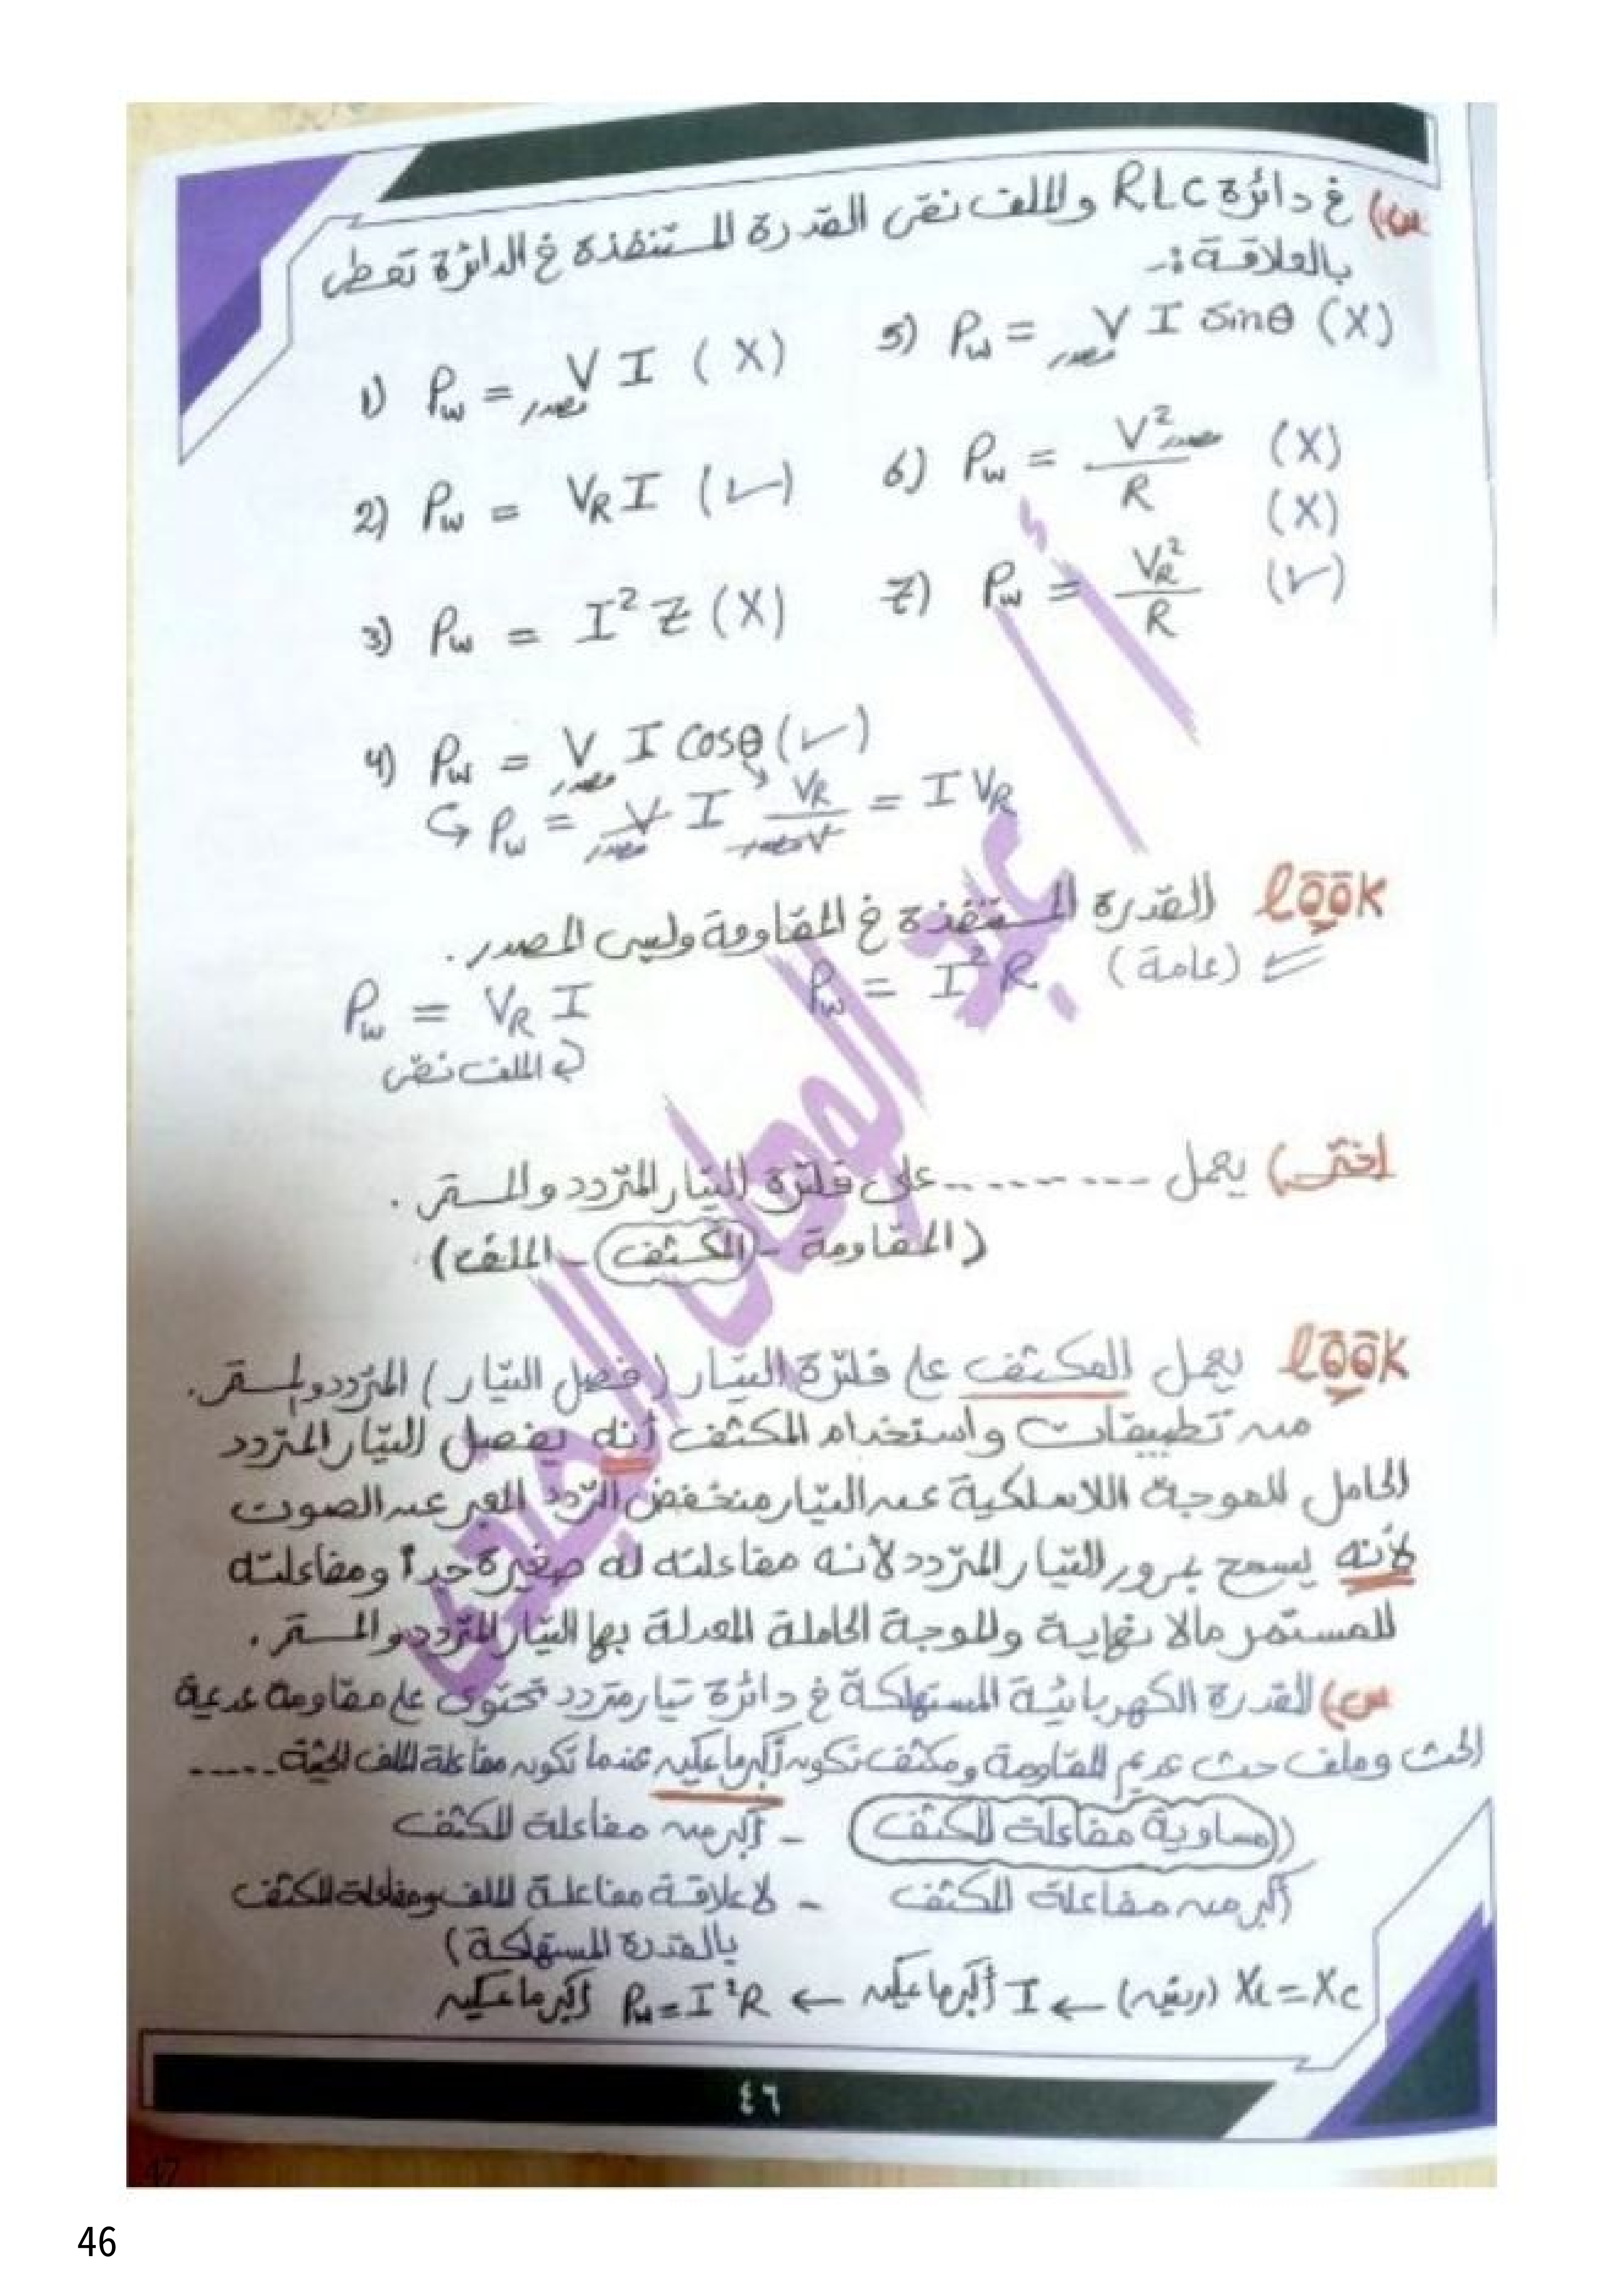 س) في دائرة RLC والملف نقي القدرة المستنفذة في الدائرة تعطى
بالعلاقة :-
1) Pw = V مصدر I (X)
2) Pw = VR I (✓)
3) Pw = I² Z (X)
4) Pw = V مصدر I Cosθ (✓)
↪ Pw = V مصدر I VR / V مصدر = I VR
5) Pw = V مصدر I Sinθ (X)
6) Pw = V² مصدر / R (X)
(X)
7) Pw = VR² / R (✓)
look القدرة المستنفذة في المقاومة وليس المصدر .
(عامة) Pw = I² R
Pw = VR I
الملف نقي
اختر) يعمل --------- على فلترة التيار المتردد والمستمر .
(المقاومة - المكثف - الملف)
look يعمل المكثف على فلترة التيار (فصل التيار) المتردد والمستمر.
من تطبيقات واستخدام المكثف أنه يفصل التيار المتردد
الحامل للموجة اللاسلكية عن التيار منخفض التردد المعبر عن الصوت
لأنه يسمح بمرور التيار المتردد لأنه مفاعلته له صغيرة جداً ومفاعلته
للمستمر مالا نهاية والموجة الحاملة المعدلة بها التيار المتردد والمستمر .
س) القدرة الكهربائية المستهلكة في دائرة تيار متردد تحتوي على مقاومة عديمة
الحث وملف حث عديم المقاومة ومكثف تكون أكبر ما يمكن عندما تكون مفاعلة الملف الحثية -----
(مساوية مفاعلة المكثف - أكبر من مفاعلة المكثف
أكبر من مفاعلة المكثف - لا علاقة مفاعلة الملف ومفاعلة المكثف
بالقدرة المستهلكة)
XL = XC (رنين) ← I أكبر ما يمكن ← Pw = I²R أكبر ما يمكن
٤٦
47
46